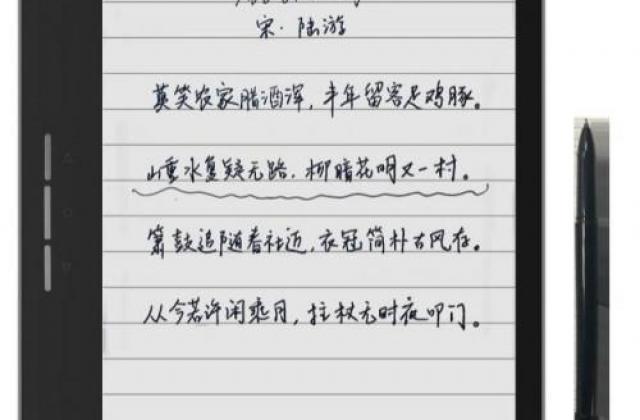 宋·陆游
莫笑农家腊酒浑，丰年留客足鸡豚。
山重水复疑无路，柳暗花明又一村。
箫鼓追随春社近，衣冠简朴古风存。
从今若许闲乘月，拄杖无时夜叩门。